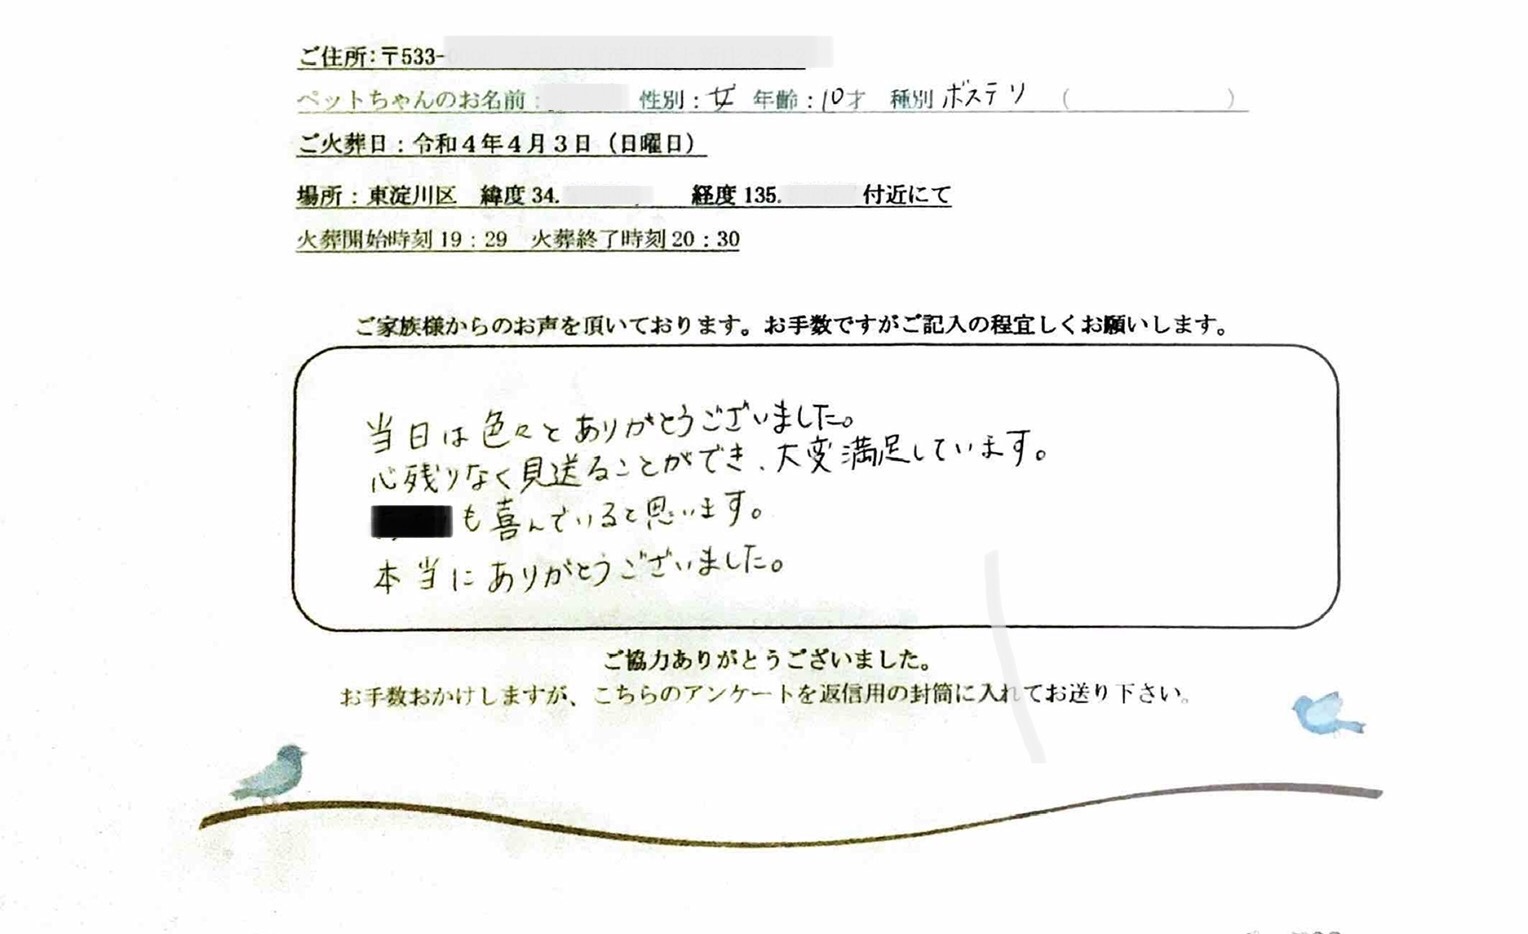 ご住所:〒533-
ペットちゃんのお名前: 性別:女 年齢:10才 種別 ボステリ ( )
ご火葬日:令和4年4月3日(日曜日)
場所:東淀川区 緯度34. 経度135. 付近にて
火葬開始時刻19:29 火葬終了時刻20:30
ご家族様からのお声を頂いております。お手数ですがご記入の程宜しくお願いします。
当日は色々とありがとうございました。
心残りなく見送ることができ、大変満足しています。
も喜んでいると思います。
本当にありがとうございました。
ご協力ありがとうございました。
お手数おかけしますが、こちらのアンケートを返信用の封筒に入れてお送り下さい。